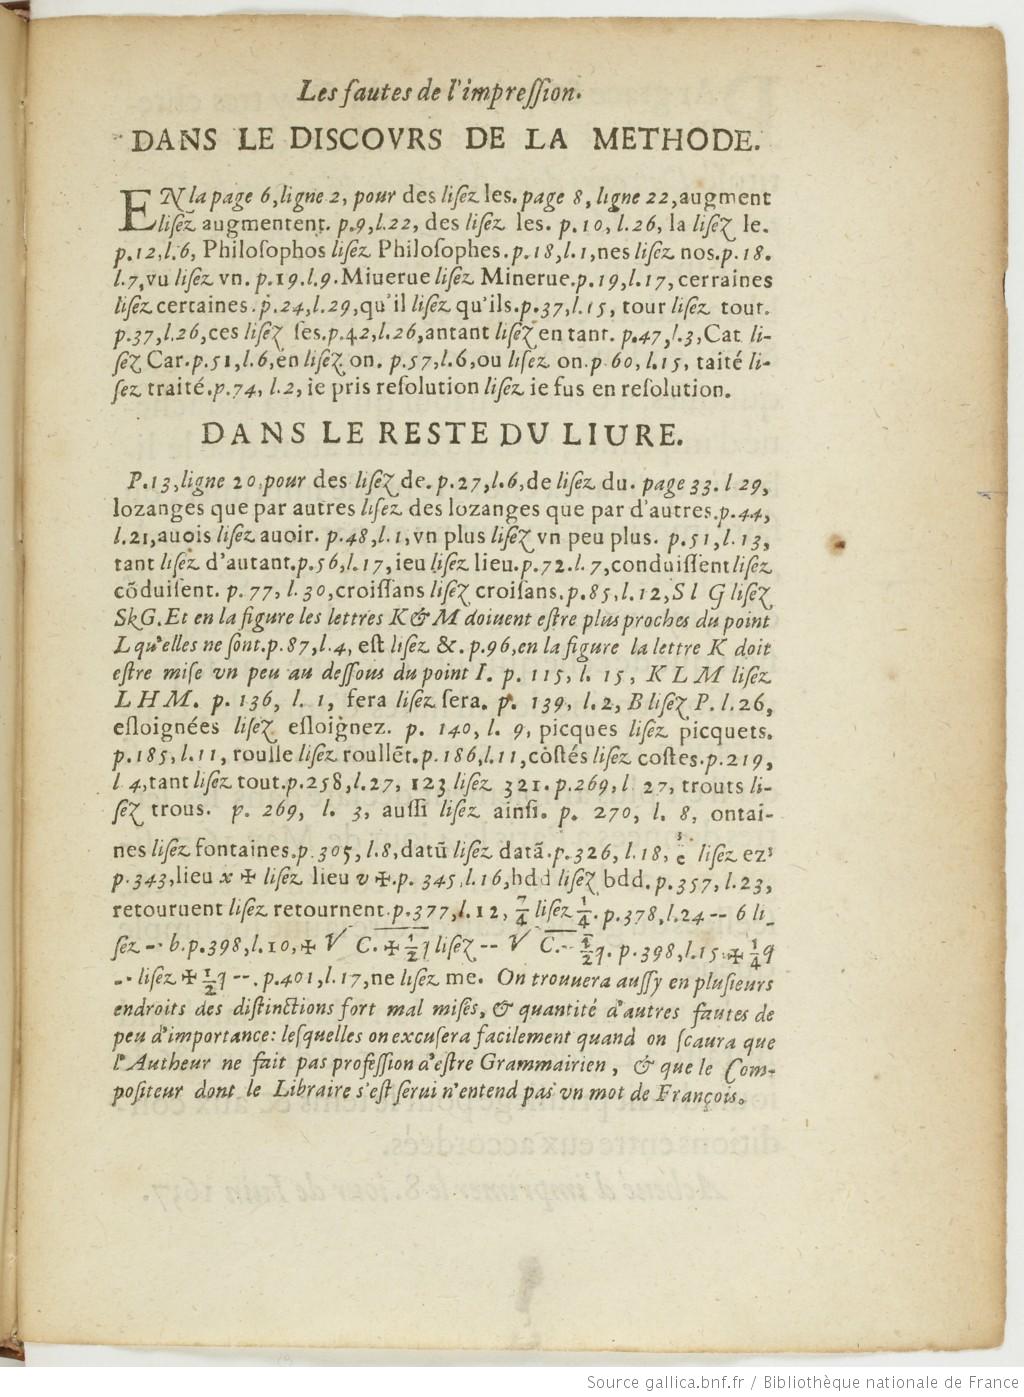 Les fautes de l'impreſſion.
DANS LE DISCOVRS DE LA METHODE.
EN la page 6, ligne 2, pour des liſez les. page 8, ligne 22, augment
liſez augmentent. p.9, l.22, des liſez les. p.10, l.26, la liſez le.
p.12, l.6, Philoſophos liſez Philoſophes. p.18, l.1, nes liſez nos. p.18.
l.7, vu liſez vn. p.19. l.9. Miuerue liſez Minerue. p.19, l.17, cerraines
liſez certaines. p.24, l.29, qu'il liſez qu'ils. p.37, l.15, tour liſez tout.
p.37, l.26, ces liſez ſes. p.42, l.26, antant liſez en tant. p.47, l.3, Cat li-
ſez Car. p.51, l.6, en liſez on. p.57, l.6, ou liſez on. p 60, l.15, taité li-
ſez traité. p.74, l.2, ie pris reſolution liſez ie fus en reſolution.
DANS LE RESTE DU LIURE.
P.13, ligne 20, pour des liſez de. p.27, l.6, de liſez du. page 33. l 29,
lozanges que par autres liſez des lozanges que par d'autres. p.44,
l.21, auois liſez auoir. p.48, l.1, vn plus liſez vn peu plus. p.51, l.13,
tant liſez d'autant. p.56, l.17, ieu liſez lieu. p.72. l.7, conduiſſent liſez
cōduiſent. p. 77, l.30, croiſſans liſez croiſans. p.85, l.12, S l G liſez
SkG. Et en la figure les lettres K & M doiuent eſtre plus proches du point
L qu'elles ne ſont. p.87, l.4, eſt liſez &. p.96, en la figure la lettre K doit
eſtre miſe vn peu au deſſous du point I. p. 115, l. 15, K L M liſez
L H M. p. 136, l. 1, fera liſez ſera. p. 139, l.2, B liſez P. l.26,
eſloignées liſez eſloignez. p. 140, l. 9, picques liſez picquets.
p.185, l.11, roulle liſez roullēt. p.186, l.11, cōſtés liſez coſtes. p.219,
l 4, tant liſez tout. p.258, l.27, 123 liſez 321. p.269, l 27, trouts li-
ſez trous. p. 269, l. 3, auſſi liſez ainſi. p. 270, l. 8, ontai-
nes liſez fontaines. p.305, l.8, datū liſez datā. p.326, l.18, liſez ez³
p.343, lieu x ✠ liſez lieu v ✠. p. 345, l.16, hdd liſez bdd. p.357, l.23,
retouruent liſez retournent. p.377, l.12, 7/4 liſez 1/4. p.378, l.24 -- 6 li-
ſez -- b. p.398, l.10, ✠ √ C. ✠ 1/2 q liſez -- √ C. -- 1/2 q. p.398, l.15 ✠ 1/4 q
-- liſez ✠ 1/2 q --. p.401, l.17, ne liſez me. On trouuera auſſy en pluſieurs
endroits des diſtinctions fort mal miſes, & quantité d'autres fautes de
peu d'importance: leſquelles on excuſera facilement quand on ſcaura que
l'Autheur ne fait pas profeſſion d'eſtre Grammairien, & que le Com-
poſiteur dont le Libraire s'eſt ſerui n'entend pas vn mot de François.
Source gallica.bnf.fr / Bibliothèque nationale de France